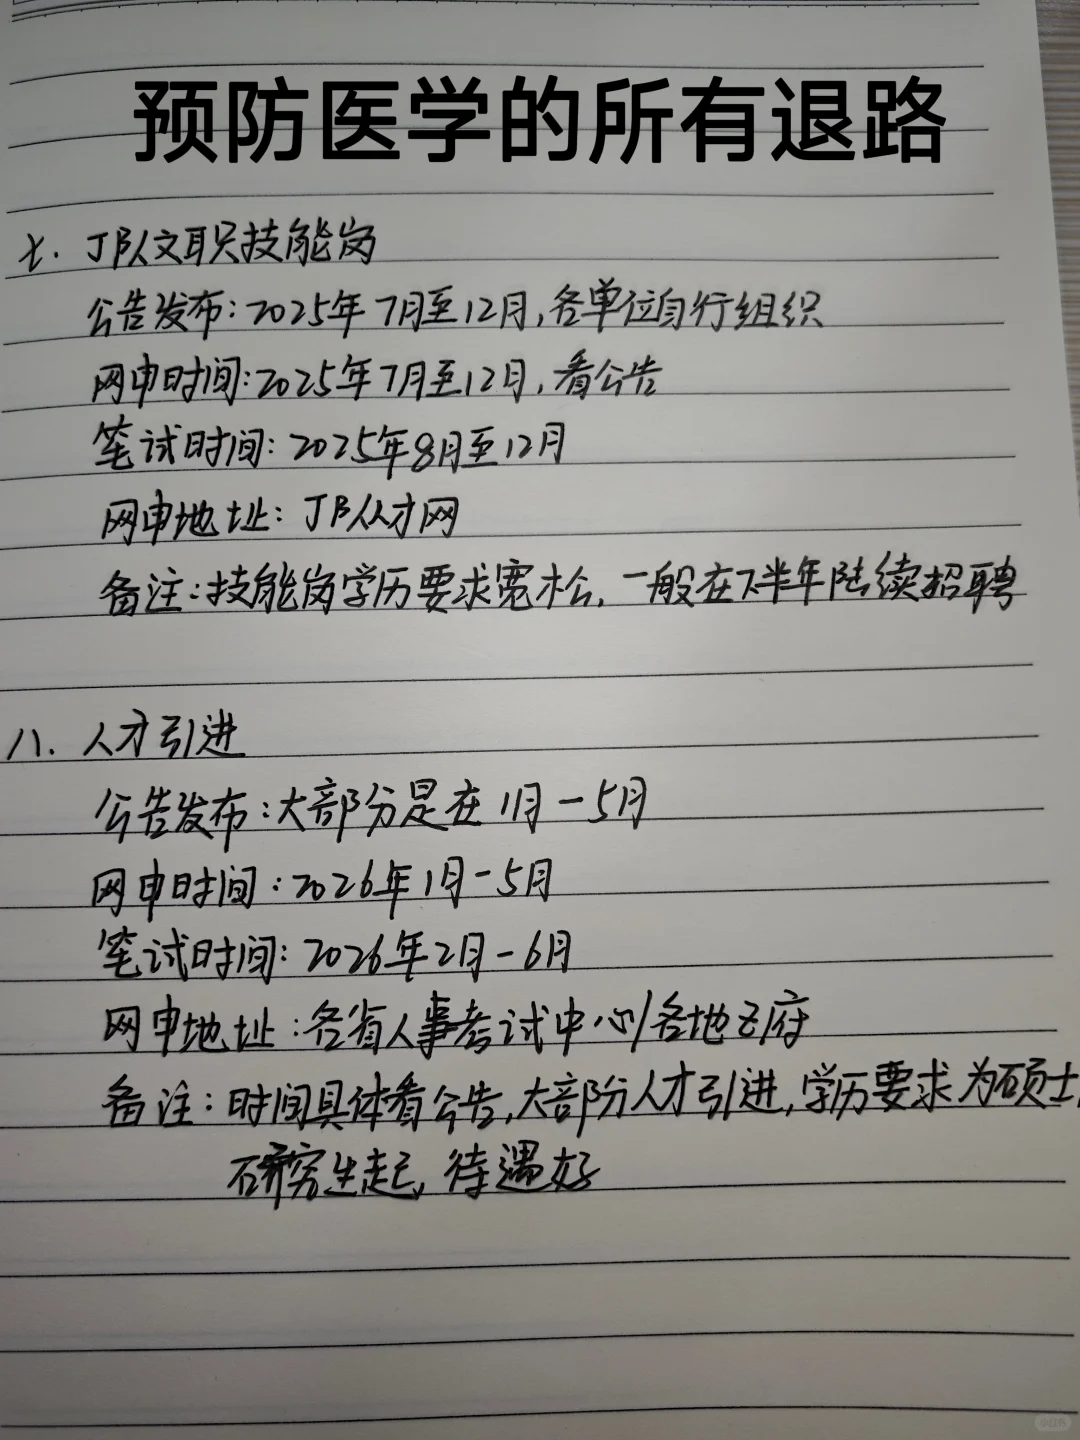 预防医学的所有退路
七. JB队文职技能岗
公告发布:2025年7月至12月,各单位自行组织
网申时间:2025年7月至12月,看公告
笔试时间:2025年8月至12月
网申地址:JB人才网
备注:技能岗学历要求宽松,一般在下半年陆续招聘
八. 人才引进
公告发布:大部分是在1月-5月
网申时间:2026年1月-5月
笔试时间:2026年2月-6月
网申地址:各省人事考试中心/各地Z府
备注:时间具体看公告,大部分人才引进,学历要求为硕士
研究生起,待遇好
小红书